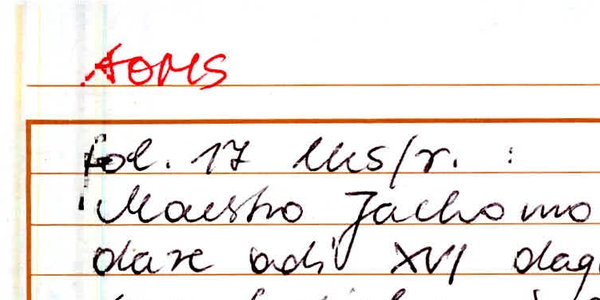 AOMS
fol. 17 lus/r. :
Maestro Jachomo
dare adi XVI dag